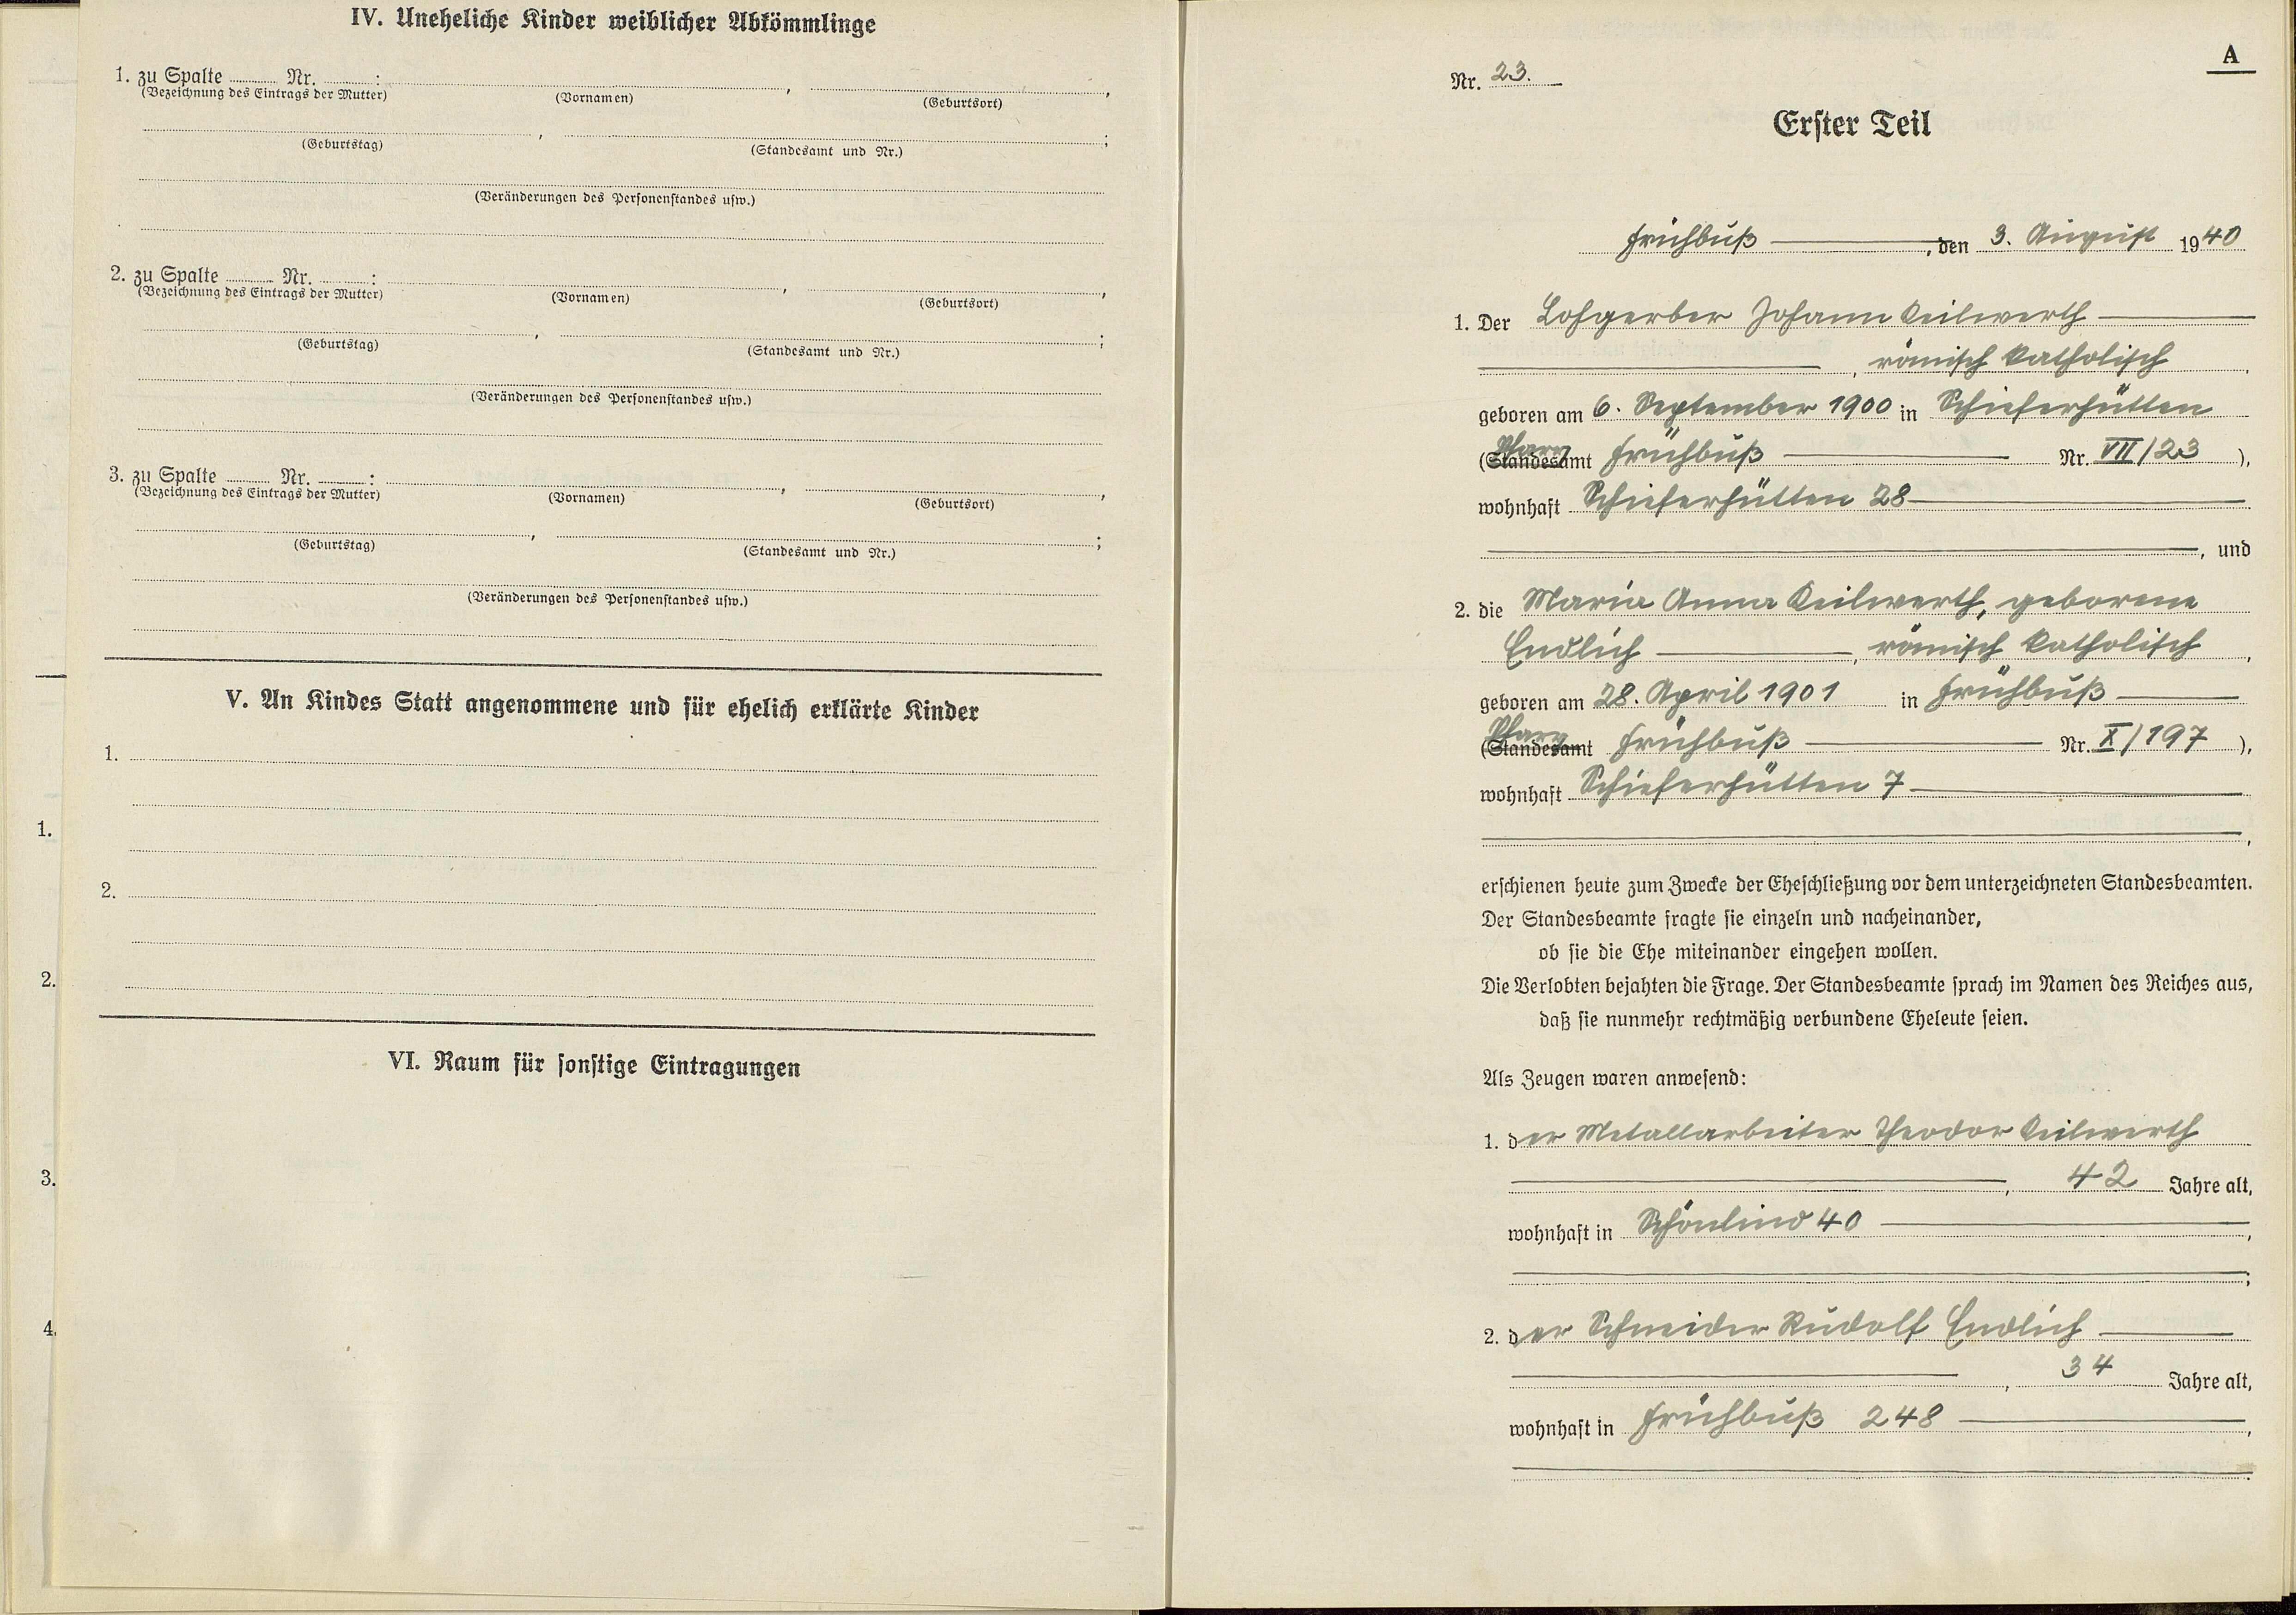 IV. Uneheliche Kinder weiblicher Abkömmlinge
1. zu Spalte ........ Nr. ........:
(Bezeichnung des Eintrags der Mutter) (Vornamen) , (Geburtsort) ,
(Geburtstag) , (Standesamt und Nr.) ;
(Veränderungen des Personenstandes usw.)
2. zu Spalte ........ Nr. ........:
(Bezeichnung des Eintrags der Mutter) (Vornamen) , (Geburtsort) ,
(Geburtstag) , (Standesamt und Nr.) ;
(Veränderungen des Personenstandes usw.)
3. zu Spalte ........ Nr. ........:
(Bezeichnung des Eintrags der Mutter) (Vornamen) , (Geburtsort) ,
(Geburtstag) , (Standesamt und Nr.) ;
(Veränderungen des Personenstandes usw.)
V. An Kindes Statt angenommene und für ehelich erklärte Kinder
1.
1.
2.
2.
VI. Raum für sonstige Eintragungen
3.
4.
A
Nr. 23.
Erster Teil
Frühbuß, den 3. August 1940
1. Der Lohgerber Johann Keilwerth
, römisch katholisch,
geboren am 6. September 1900 in Schieferhütten
Pfarr
(Standesamt Frühbuß Nr. VII/23),
wohnhaft Schieferhütten 28
, und
2. die Maria Anna Keilwerth, geborene
Endlich, römisch katholisch,
geboren am 28. April 1901 in Frühbuß
Pfarr
(Standesamt Frühbuß Nr. X/197),
wohnhaft Schieferhütten 7
,
erschienen heute zum Zwecke der Eheschließung vor dem unterzeichneten Standesbeamten.
Der Standesbeamte fragte sie einzeln und nacheinander,
ob sie die Ehe miteinander eingehen wollen.
Die Verlobten bejahten die Frage. Der Standesbeamte sprach im Namen des Reiches aus,
daß sie nunmehr rechtmäßig verbundene Eheleute seien.
Als Zeugen waren anwesend:
1. der Metallarbeiter Theodor Keilwerth
, 42 Jahre alt,
wohnhaft in Schönlind 40,
;
2. der Schneider Rudolf Endlich
, 34 Jahre alt,
wohnhaft in Frühbuß 248,
.